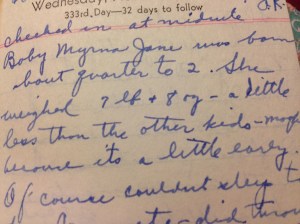 Wednesday,
333rd Day—32 days to follow
checked in at midnite OK-
Baby Myrna Jane was born
about quarter to 2. She
weighed 7 lb + 8 oz - a little
less than the other kids-
because its a little early.
Of course couldn't sleep
did